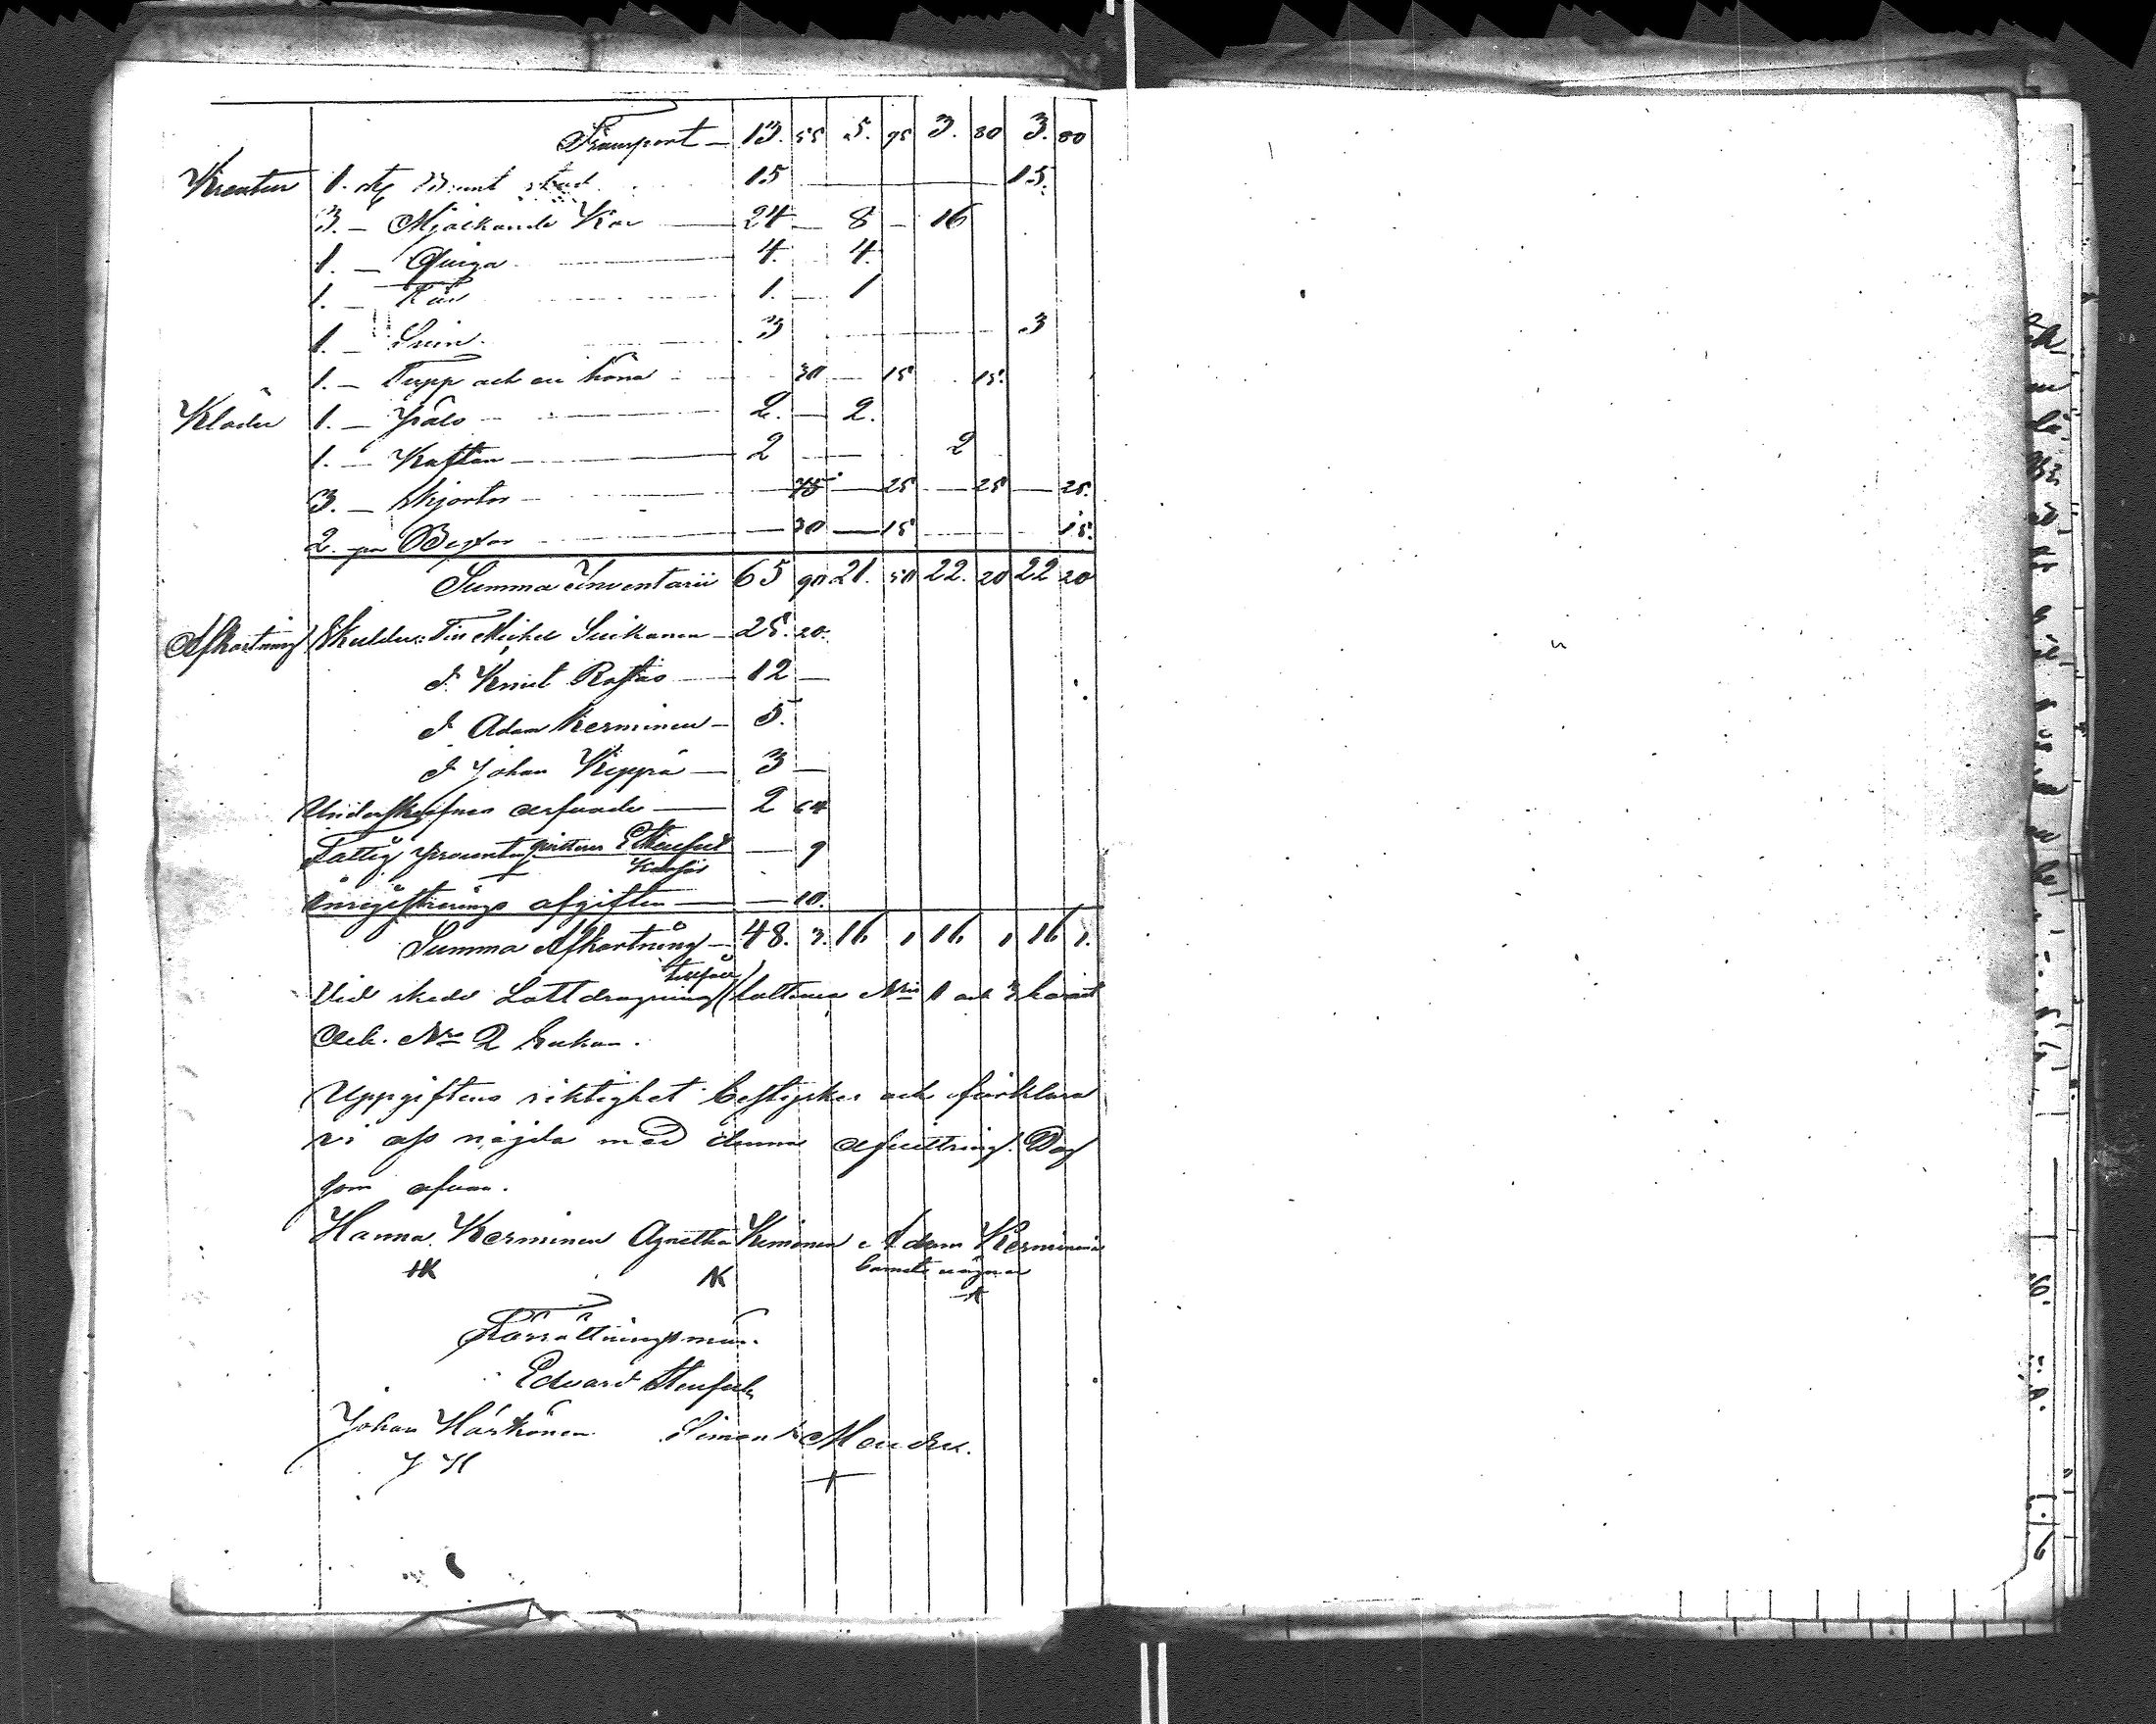 Transport — 13. 55 5. 95 3. 80 3. 80
Kreatur 1. st. Brunt 15 15.
3. — Mjölkande Kor — 24 — 8 — 16
1. — Quiga 4. 4.
1. — Får 1. — 1
1. — Svin 3 3
1. — Tupp och en höna 30 — 15 15.
Kläder 1. — Päls 2. — 2.
1. — Kaftan 2 2
3. — Skjortor — 75 — 25 — 25 — 25.
2. par Byxor — 30 — 15 15.
Summa Inventarii 65 90 21. 50 22. 20 22 20
Afkortning Skulder: Till Michel Suikanen — 25. 20.
d. Knut Rastas — 12 —
d Adam Kerminen — 5.
d Johan Kippa — 3 —
Underskrefnes arfvode — 2 64
Fattig procenten qvitteras EStenfeldt — 9
Inregistrerings afgiften — — 10.
Summa Afkortning — 48. 3. 16 1 16 1 16 1.
tillföll
Vid skedd Lottdragning lottorna Nris 1 och 3 barnet
och. No 2 Enkan.
Uppgiftens riktighet bestyrkes och förklara
vi oss nöjda med denna afvittring. Dag
som ofvan.
Hanna Kerminen Agnetha Kiminen Adam Kerminen
HK AK barnets vägnar
Förrättningsmän.
Edvard Stenfelt
Johan Härkönen Simon
J H